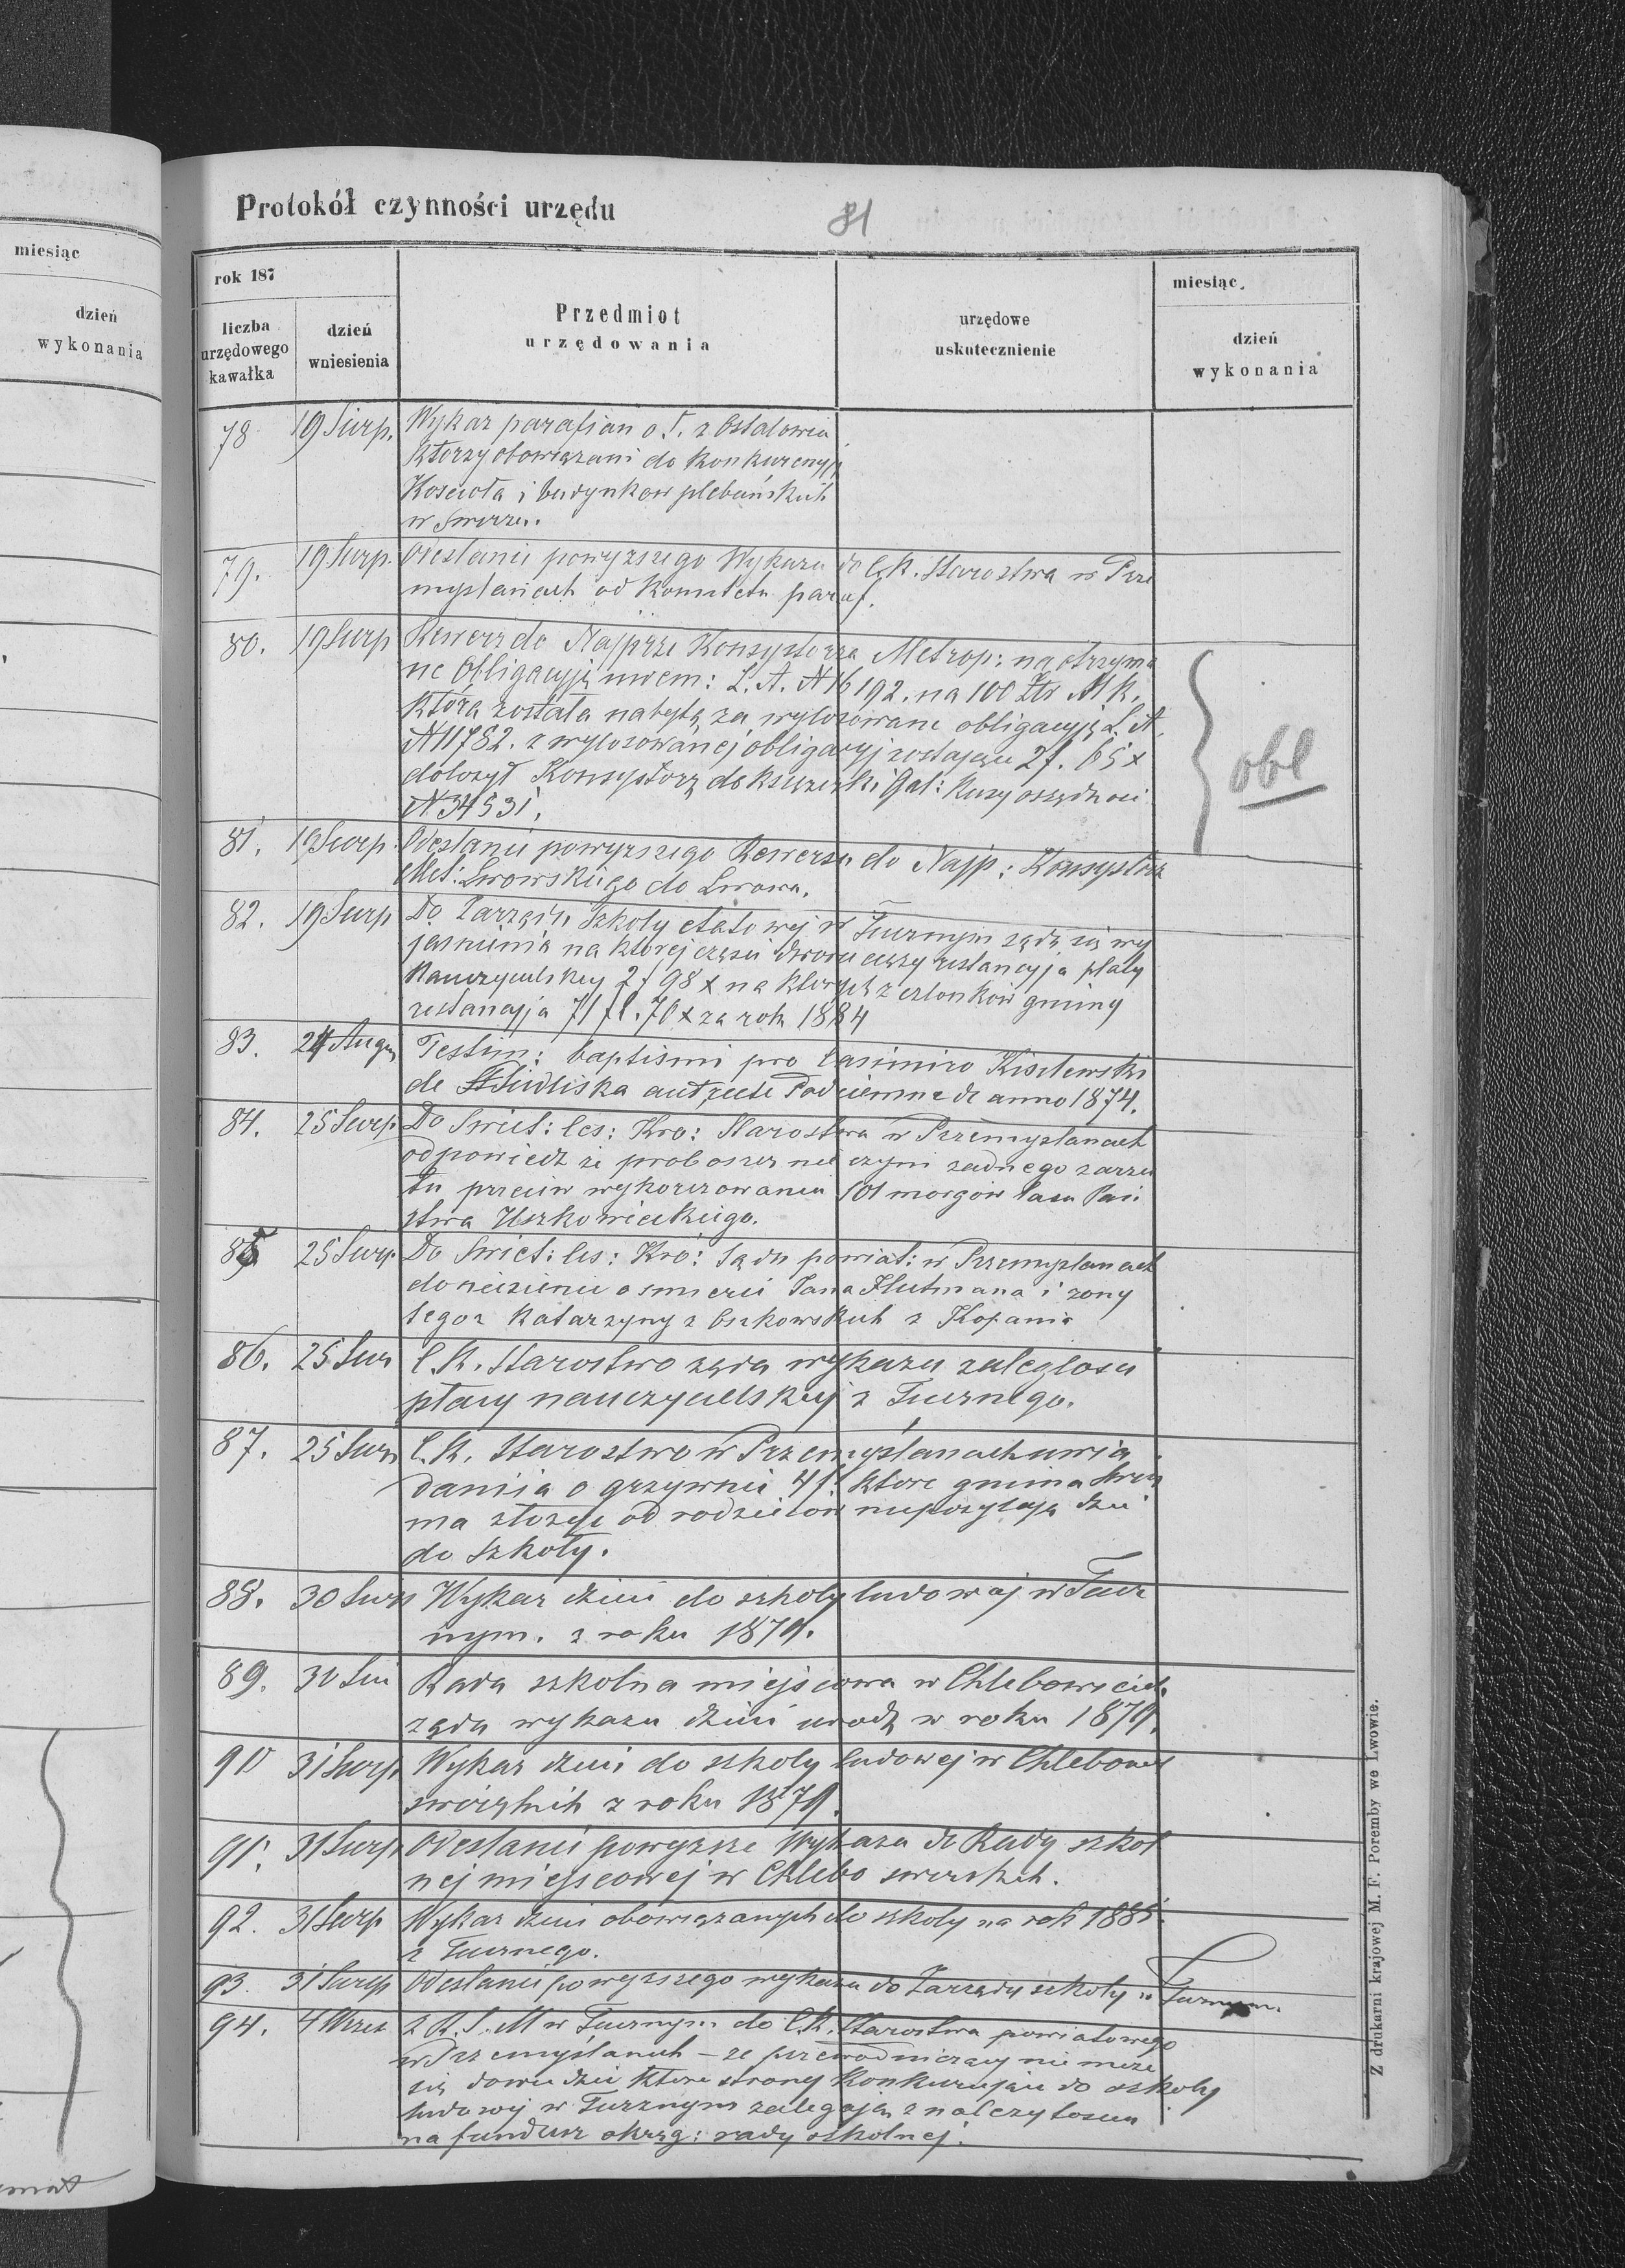 miesiąc
dzień
wykonania
Protokół czynności urzędu
81
rok 187
miesiąc.
liczba
urzędowego
kawałka
dzień
wniesienia
Przedmiot
urzędowania
urzędowe
uskutecznienie
dzień
wykonania
78 19 Sierp. Wykaz parafian o. ł. z Ostałowca
którzy obowiązani do konkurencyji
Kościoła i budynkow plebańskich
w Swirzu.
79. 19 Sierp. Odesłanie powyższego Wykazu do C.K. Starostwa w Prze
myślanach od Komitetu paraf.
80. 19 Sierp Rewers do Najprze Konsystorza Metrop: na otrzyma
ne Obligacyję L. A. N 16192. na 100 Złr M k.
która została nabytą za wylosowane obligacyję L. A.
N 11782. z wylosowanej obligacyj zostające 2 f. 65 x
dołożył Konsystorz do książeczki Gal: Kasy oszędnosci
N 34531.
obl
81. 19 Sierp. Odesłanie powyższego Rewersu do Najp: Konsystorz
Met: Lwowskiego do Lwowa.
82. 19 Sierp Do Zarządu Szkoły etatowej w Tucznym żąda się wy
jasnienia na ktorej częsci dworu ciąży restancyja płaty
Nauczycielskiej 2 f 98 x na ktorych z członkow gminy
restancyja 71 fl. 70 x za rok 1884
83. 24 Aug Testim: baptismi pro Casimiro Kislewski
de Siedliska aut recte Podciemne de anno 1874.
84. 25 Sierp Do Swiet: Ces: Kro: Starostwa w Przemyslanach
odpowiedz ze proboszcz nie czyni zadnego zarzu
tu przeciw wykorzowaniu 101 morgow lasu Pań
stwa Uszkowickiego.
85 25 Sierp. Do Swiet: Ces: Kró: Sądu powiat: w Przemyslanach
doniesienie o smierci Jana Hutmana i zony
tegoz Katarzyny z Oszkowskich z Kopania
86. 25 Sier C.K. Starostwo żąda wykazu zaległosci
płacy nauczycielskiej z Tucznego.
87. 25 Sier C.K. Starostwo w Przemyślanach uwia
damia o grzywnie 4 f. ktore gmina Swirz
ma złożyc od rodzicow nieposyłają dzieci
do szkoły.
88. 30 Sier Wykaz dzieci do szkoly ludowej w Tucz
nym. z roku 1879.
89. 30 Sie Rada szkolna miejscowa w Chlebowicach
żąda wykazu dzieci urodz w roku 1879.
90 31 Sierp Wykaz dzieci do szkoly ludowej w Chlebowi
swirzkich z roku 1879.
91. 31 Sierp Odesłanie powyższe Wykazu do Rady szkol
nej miejscowej w Chlebo swirzkich.
92. 31 Sierp Wykaz dzieci obowiązanych do szkoły na rok 1885
z Tucznego.
93. 31 Sierp Odesłanie powyzszego wykazu do Zarządu szkoly w Tucznem.
94. 4 Wrzes z R. S. M w Tucznym do C.K. Starostwa powiatowego
w Przemyślanach – ze przewodniczacy nie moze
się dowiedziec ktore strony Konkurujące do szkoły
ludowej w Tucznym zalegają z nalezytoscią
na fundusz okręg: rady szkolnej.
Z drukarni krajowej M. F. Poremby we Lwowie.